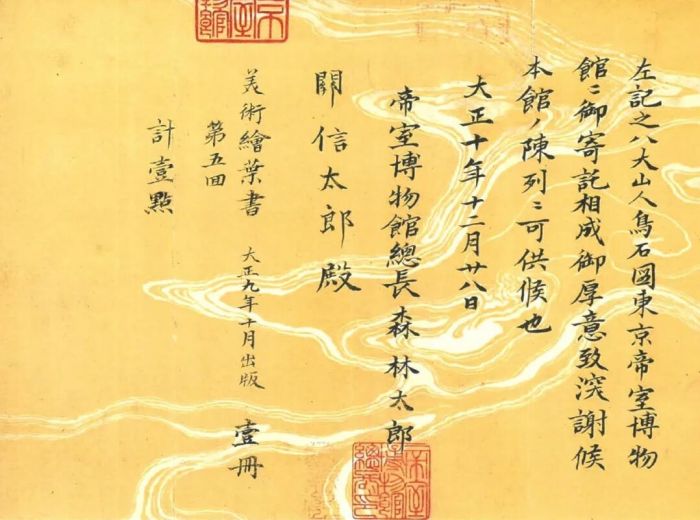 左記之八大山人鳥石図東京帝室博物
館ニ御寄託相成御厚意致深謝候
本館ノ陳列ニ可供候也
大正十年十二月廿八日
帝室博物館總長森林太郎
関信太郎殿
美術繪葉書 大正九年十月出版 壹冊
第五回
計壹點